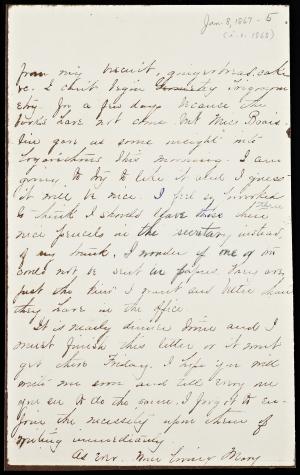 Jan. 8, 1867 - 5
(i.e. 1868)
from my biscuit, gingerbread, cake
&c. I can't begin Chemistry, trigonom
etry for a few days because the
books have not come. But Miss
gave us some insight into
logarithms this morning. I am
going to try to like it and I guess
it will be nice. I feel so
to think I should leave those there
nice pencils in the secretary instead
of my trunk. I wonder if one of
could not be sent in papers
just the kind I want and better than
they have in the office.
It is nearly dinner time and I
must finish this letter or it won't
get there Friday. I hope you will
write me soon and tell every one
you see to do the same. I forgot to en-
force the necessity upon them of
writing immediately.
As ever. Your Mary